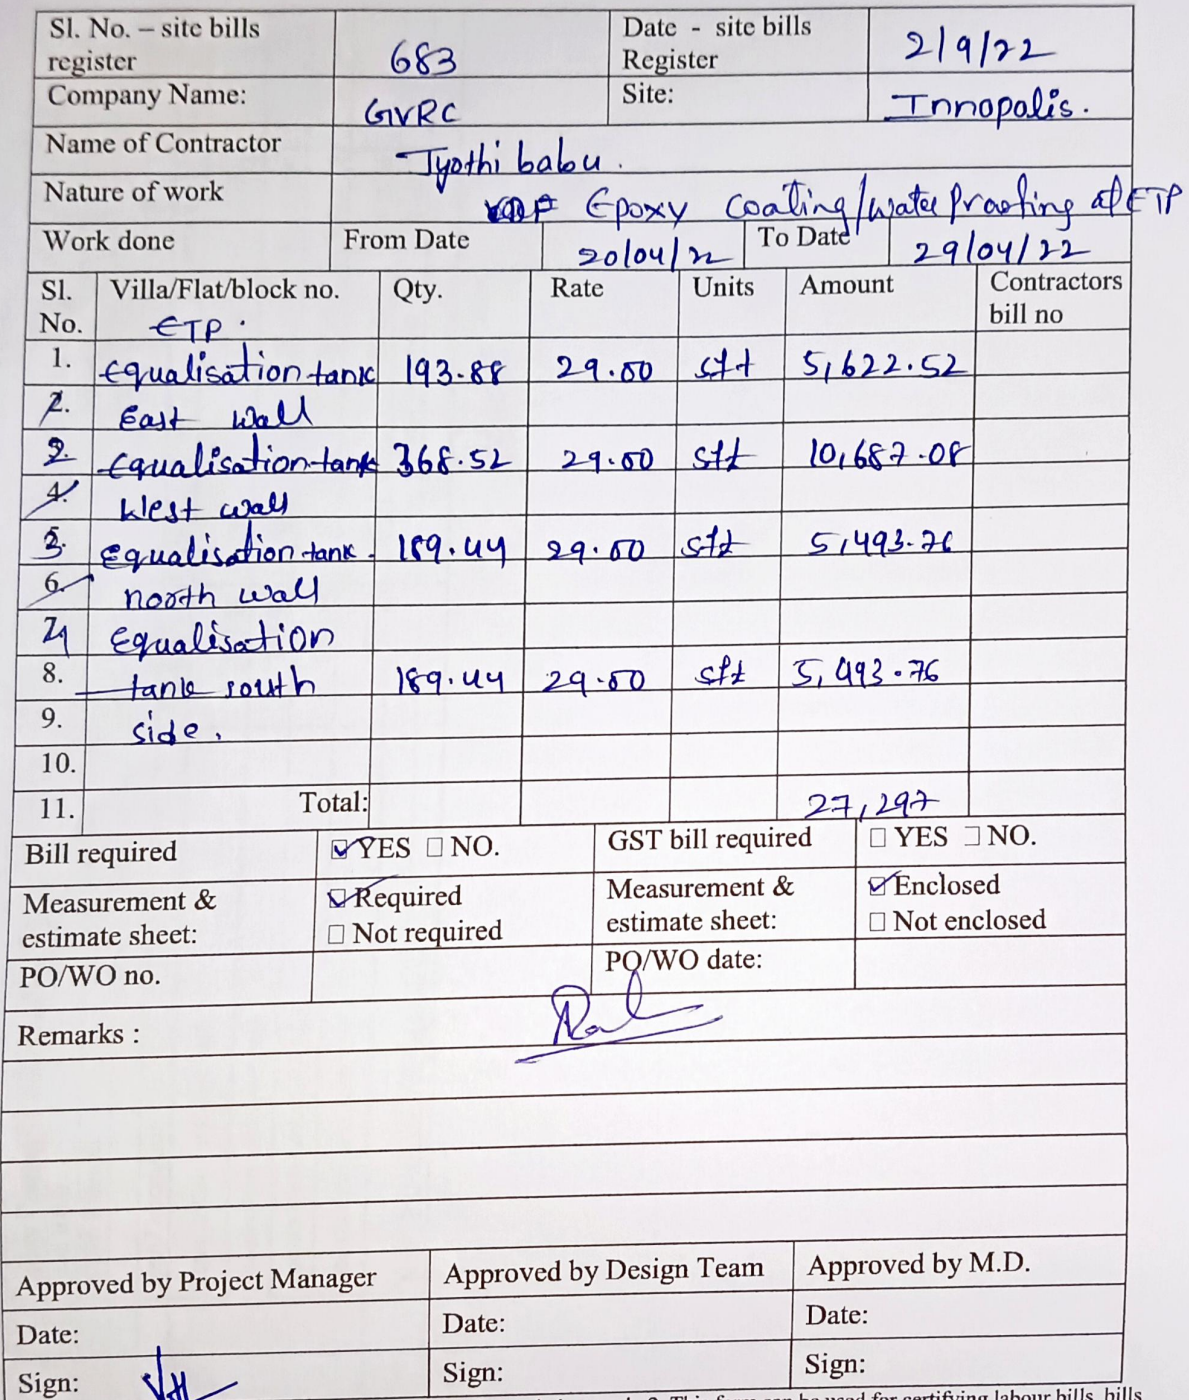 Sl. No. – site bills register 683 Date - site bills Register 2/9/22
Company Name: GVRC Site: Innopolis.
Name of Contractor Jyothi babu.
Nature of work Epoxy Coating/water Proofing at ETP
Work done From Date 20/04/22 To Date 29/04/22
Sl. No. Villa/Flat/block no. Qty. Rate Units Amount Contractors bill no
ETP.
1. Equalisation tank 193.88 29.00 sft 5,622.52
2. East wall
2. Equalisation tank 368.52 29.00 sft 10,687.08
4. West wall
3. Equalisation tank. 189.44 29.00 sft 5,493.76
6. north wall
4 Equalisation
8. tank south 189.44 29.00 sft 5,493.76
9. side.
10.
11. Total: 27,297
Bill required YES NO. GST bill required YES NO.
Measurement & estimate sheet: Required Not required Measurement & estimate sheet: Enclosed Not enclosed
PO/WO no. PO/WO date:
Remarks :
Approved by Project Manager Approved by Design Team Approved by M.D.
Date: Date: Date:
Sign: Sign: Sign:
This form can be used for certifying labour bills, bills